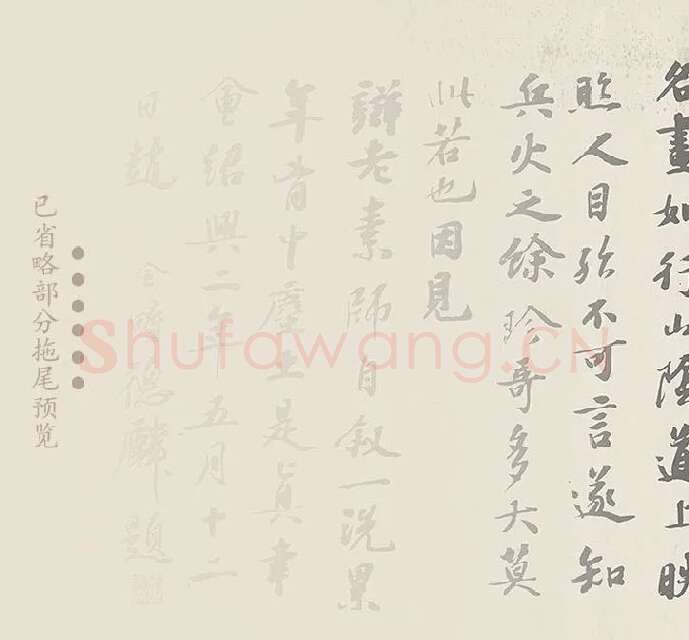 名畫如行山陰道上映
照人目殆不可言遂知
兵火之餘珍奇多大莫
此若也因見
辯老素師自叙一洗累
年胷中塵土是眞幸
會紹興二年五月十二
日趙令畤德麟題
已省略部分拖尾预览
Shufawang.CN